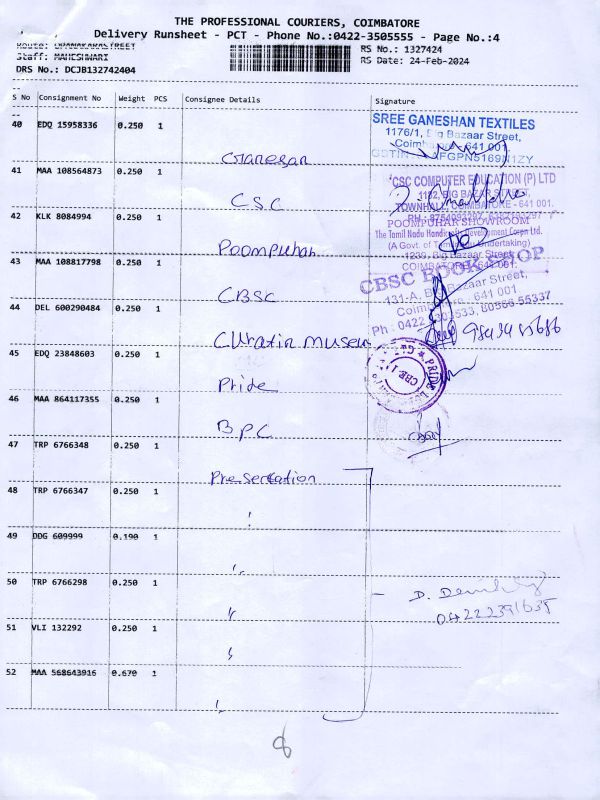 THE PROFESSIONAL COURIERS, COIMBATORE
Delivery Runsheet - PCT - Phone No.:0422-3505555 - Page No.:4
Staff: MAHESHWARI
DRS No.: DCJB132742404
RS No.: 1327424
RS Date: 24-Feb-2024
S No Consignment No Weight PCS Consignee Details Signature
40 EDQ 15958336 0.250 1 Ganesan
SREE GANESHAN TEXTILES
1176/1, Big Bazaar Street,
Coimbatore 641 001
41 MAA 108564873 0.250 1 CSC
CSC COMPUTER EDUCATION (P) LTD
BIG BAZAR STREET
TOWNHALL, COIMBATORE - 641 001.
42 KLK 8084994 0.250 1 Poompuhar
POOMPUHAR SHOWROOM
The Tamil Nadu Handicrafts Development Corpn Ltd.
(A Govt. of Tamilnadu Undertaking)
1239, Big Bazaar Street
COIMBATORE - 641 001.
43 MAA 108817798 0.250 1 CBSC
CBSC BOOK SHOP
131-A, Big Bazaar Street,
Coimbatore - 641 001
44 DEL 600290484 0.250 1 museum
45 EDQ 23848603 0.250 1 Pride
PRIDE
CBE-1
46 MAA 864117355 0.250 1 BPC
47 TRP 6766348 0.250 1 Presentation
48 TRP 6766347 0.250 1
49 DDG 609999 0.190 1
50 TRP 6766298 0.250 1
D.
04222391635
51 VLI 132292 0.250 1
52 MAA 568643916 0.670 1
8